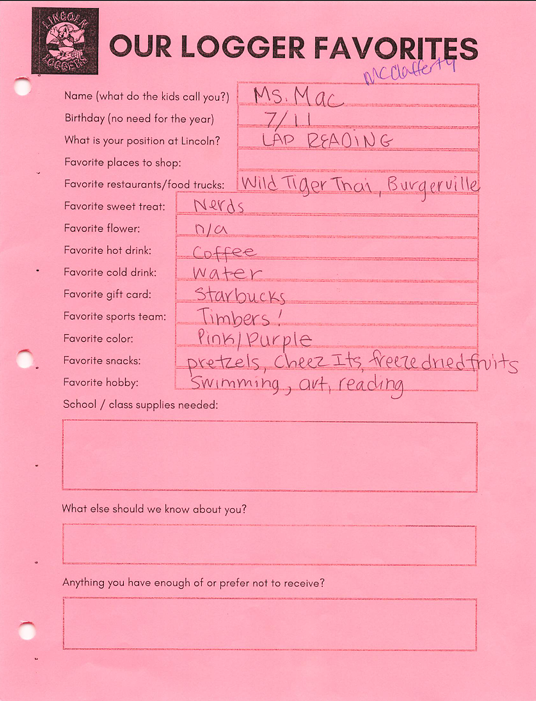 LINCOLN
LOGGERS
OUR LOGGER FAVORITES
McClafferty
Name (what do the kids call you?) Ms. Mac
Birthday (no need for the year) 7/11
What is your position at Lincoln? LAP READING
Favorite places to shop:
Favorite restaurants/food trucks: Wild Tiger Thai, Burgerville
Favorite sweet treat: Nerds
Favorite flower: n/a
Favorite hot drink: Coffee
Favorite cold drink: Water
Favorite gift card: Starbucks
Favorite sports team: Timbers!
Favorite color: Pink/Purple
Favorite snacks: pretzels, Cheez Its, freeze dried fruits
Favorite hobby: Swimming, art, reading
School / class supplies needed:
What else should we know about you?
Anything you have enough of or prefer not to receive?